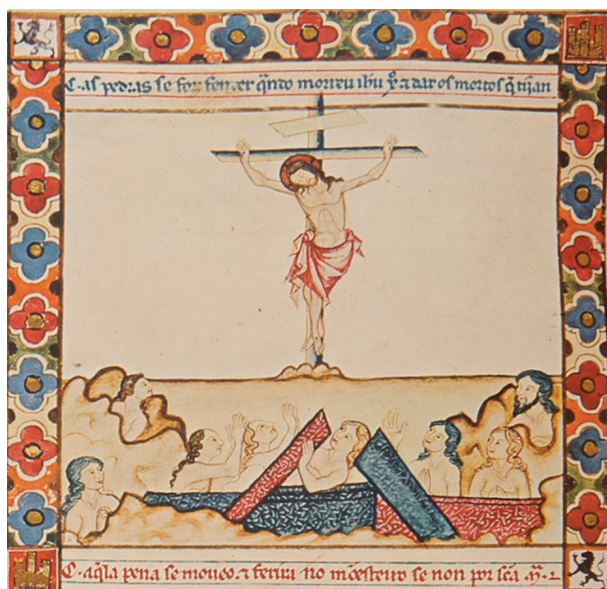 C. as pedras se forō fender q̄ndo morreu ih̄u x̄o ⁊ dar os mortos q̄ tijan
C. aq̄la pena se moueo ⁊ feriu no mōesteiro se non por s̄ca m̄.